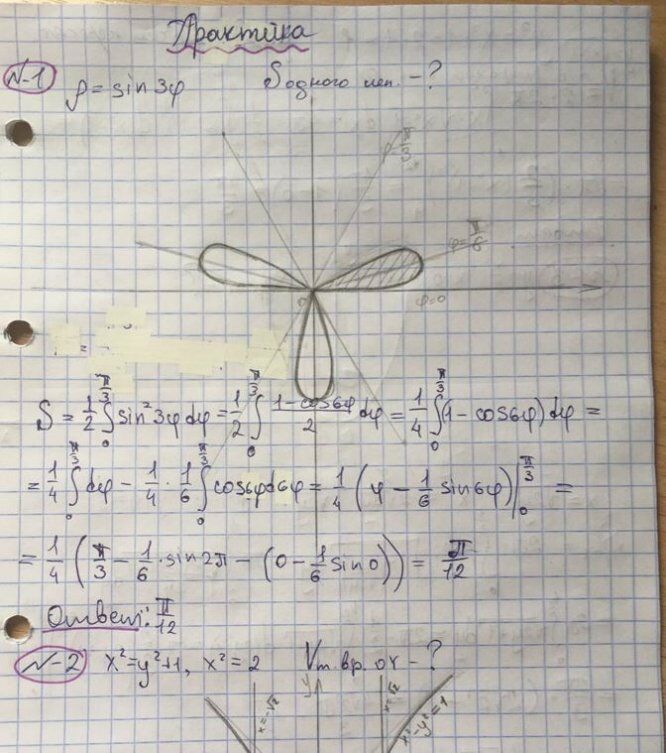 Практика
N-1 ρ = sin 3φ S одного леп. - ?
φ = π/3
φ = π/6
0 φ=0
S = 1/2 ∫₀^(π/3) sin² 3φ dφ = 1/2 ∫₀^(π/3) (1-cos6φ)/2 dφ = 1/4 ∫₀^(π/3) (1 - cos6φ) dφ =
= 1/4 ∫₀^(π/3) dφ - 1/4 · 1/6 ∫₀^(π/3) cos6φ d6φ = 1/4 (φ - 1/6 sin6φ) |₀^(π/3) =
= 1/4 (π/3 - 1/6 · sin2π - (0 - 1/6 sin0)) = π/12
Ответ: π/12
N-2 x² = y²+1, x² = 2 Vт.вр. оY - ?
y
x=-√2 x=√2 x²-y²=1